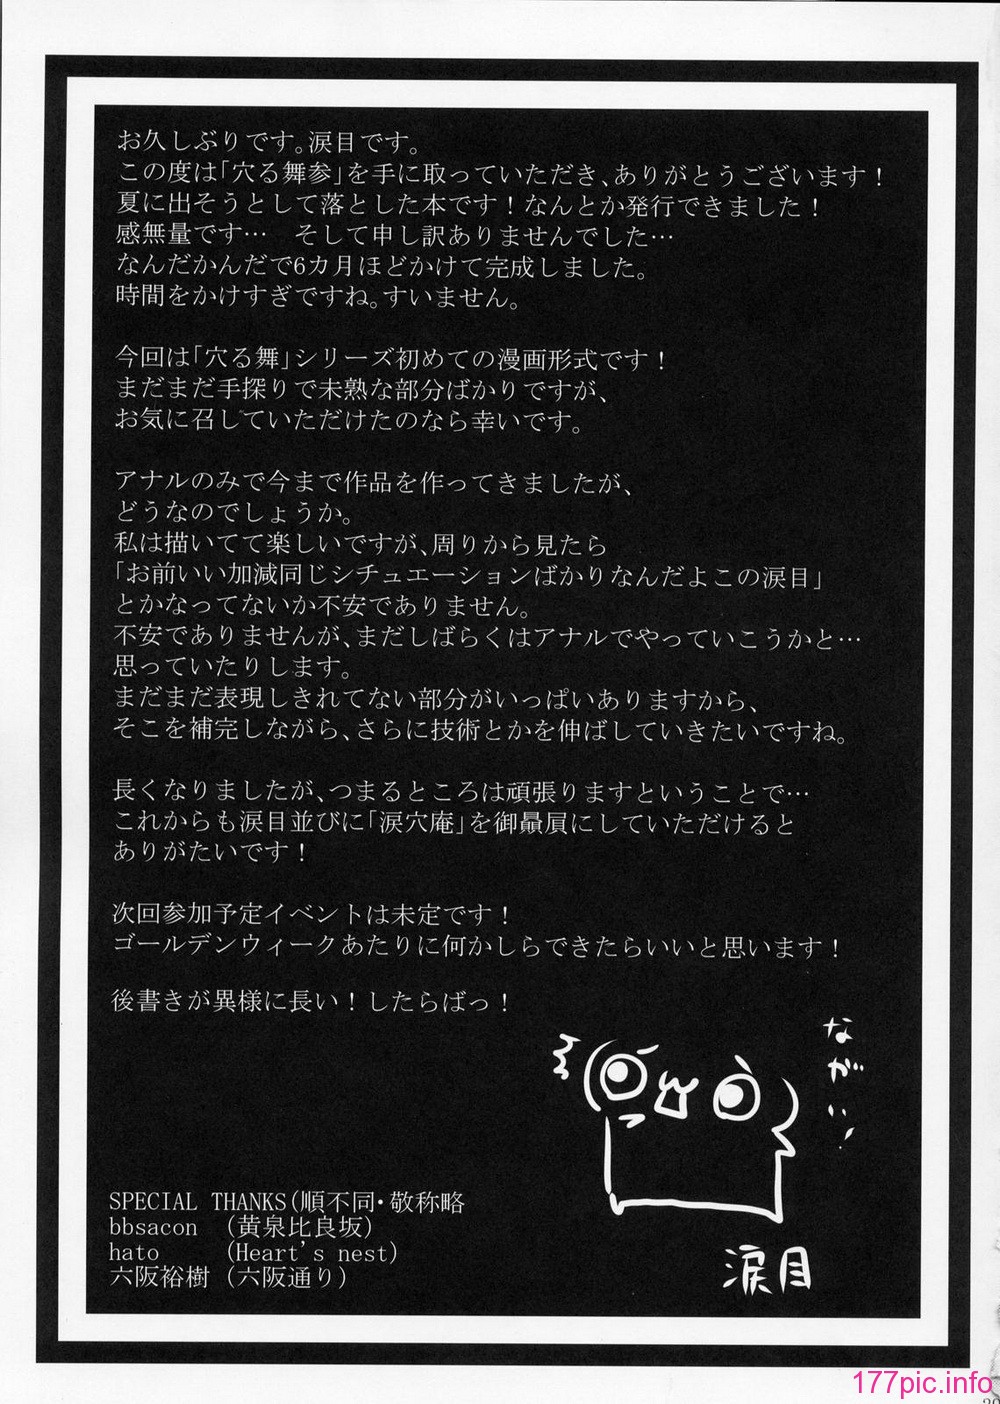 お久しぶりです。涙目です。
この度は「穴る舞参」を手に取っていただき、ありがとうございます！
夏に出そうとして落とした本です！なんとか発行できました！
感無量です…　そして申し訳ありませんでした…
なんだかんだで6カ月ほどかけて完成しました。
時間をかけすぎですね。すいません。
今回は「穴る舞」シリーズ初めての漫画形式です！
まだまだ手探りで未熟な部分ばかりですが、
お気に召していただけたのなら幸いです。
アナルのみで今まで作品を作ってきましたが、
どうなのでしょうか。
私は描いてて楽しいですが、周りから見たら
「お前いい加減同じシチュエーションばかりなんだよこの涙目」
とかなってないか不安でありません。
不安でありませんが、まだしばらくはアナルでやっていこうかと…
思っていたりします。
まだまだ表現しきれてない部分がいっぱいありますから、
そこを補完しながら、さらに技術とかを伸ばしていきたいですね。
長くなりましたが、つまるところは頑張りますということで…
これからも涙目並びに「涙穴庵」を御贔屓にしていただけると
ありがたいです！
次回参加予定イベントは未定です！
ゴールデンウィークあたりに何かしらできたらいいと思います！
後書きが異様に長い！したらばっ！
ながい！
SPECIAL THANKS(順不同・敬称略
bbsacon (黄泉比良坂)
hato (Heart's nest)
六阪裕樹 (六阪通り)
涙目
177pic.info